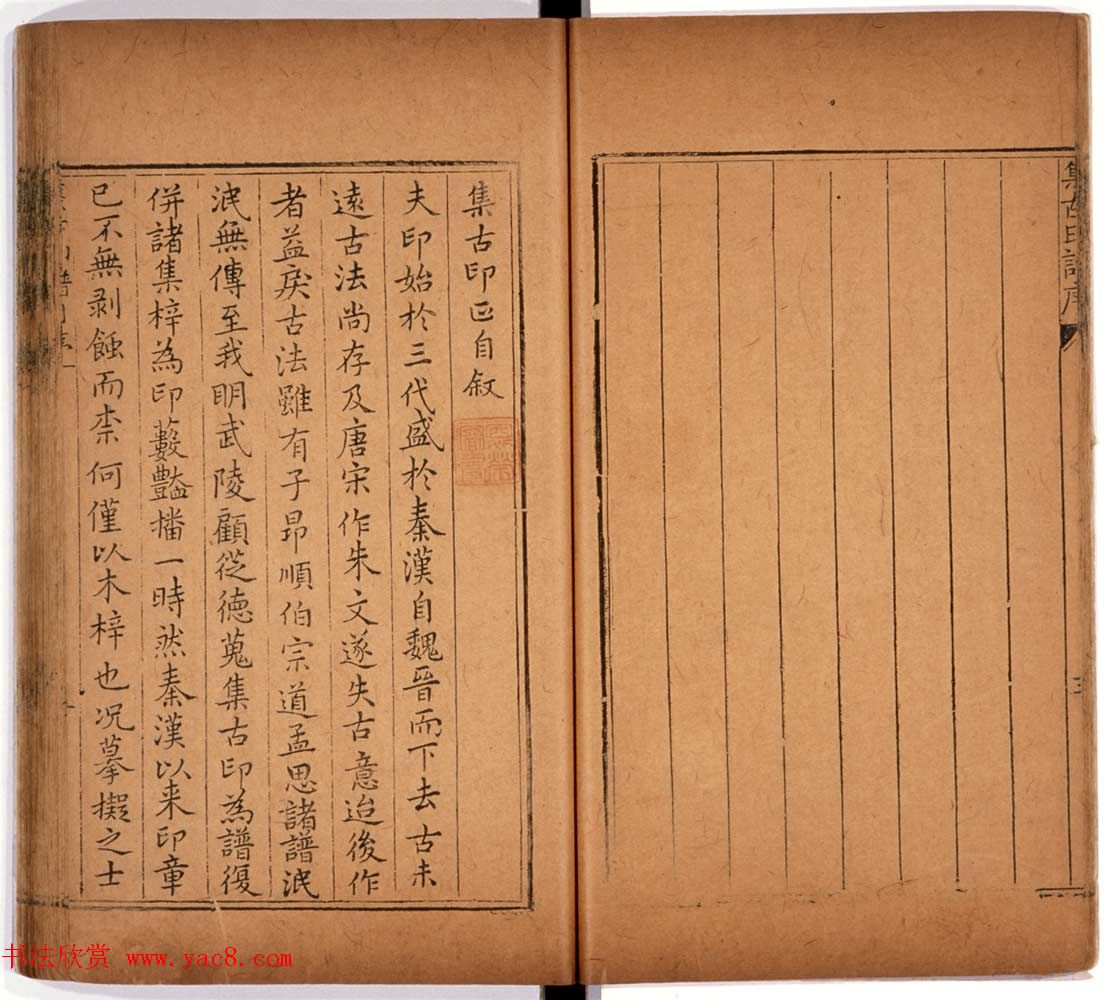 集古印譜序
三
集古印正自叙
夫印始於三代盛於秦漢自魏晉而下去古未
遠古法尚存及唐宋作朱文遂失古意迨後作
者益戾古法雖有子昂順伯宗道孟思諸譜泯
泯無傳至我眀武陵顧從德蒐集古印為譜復
併諸集梓為印藪豔播一時然秦漢以来印章
已不無剥蝕而柰何僅以木梓也况摹擬之士
书法欣赏 www.yac8.com